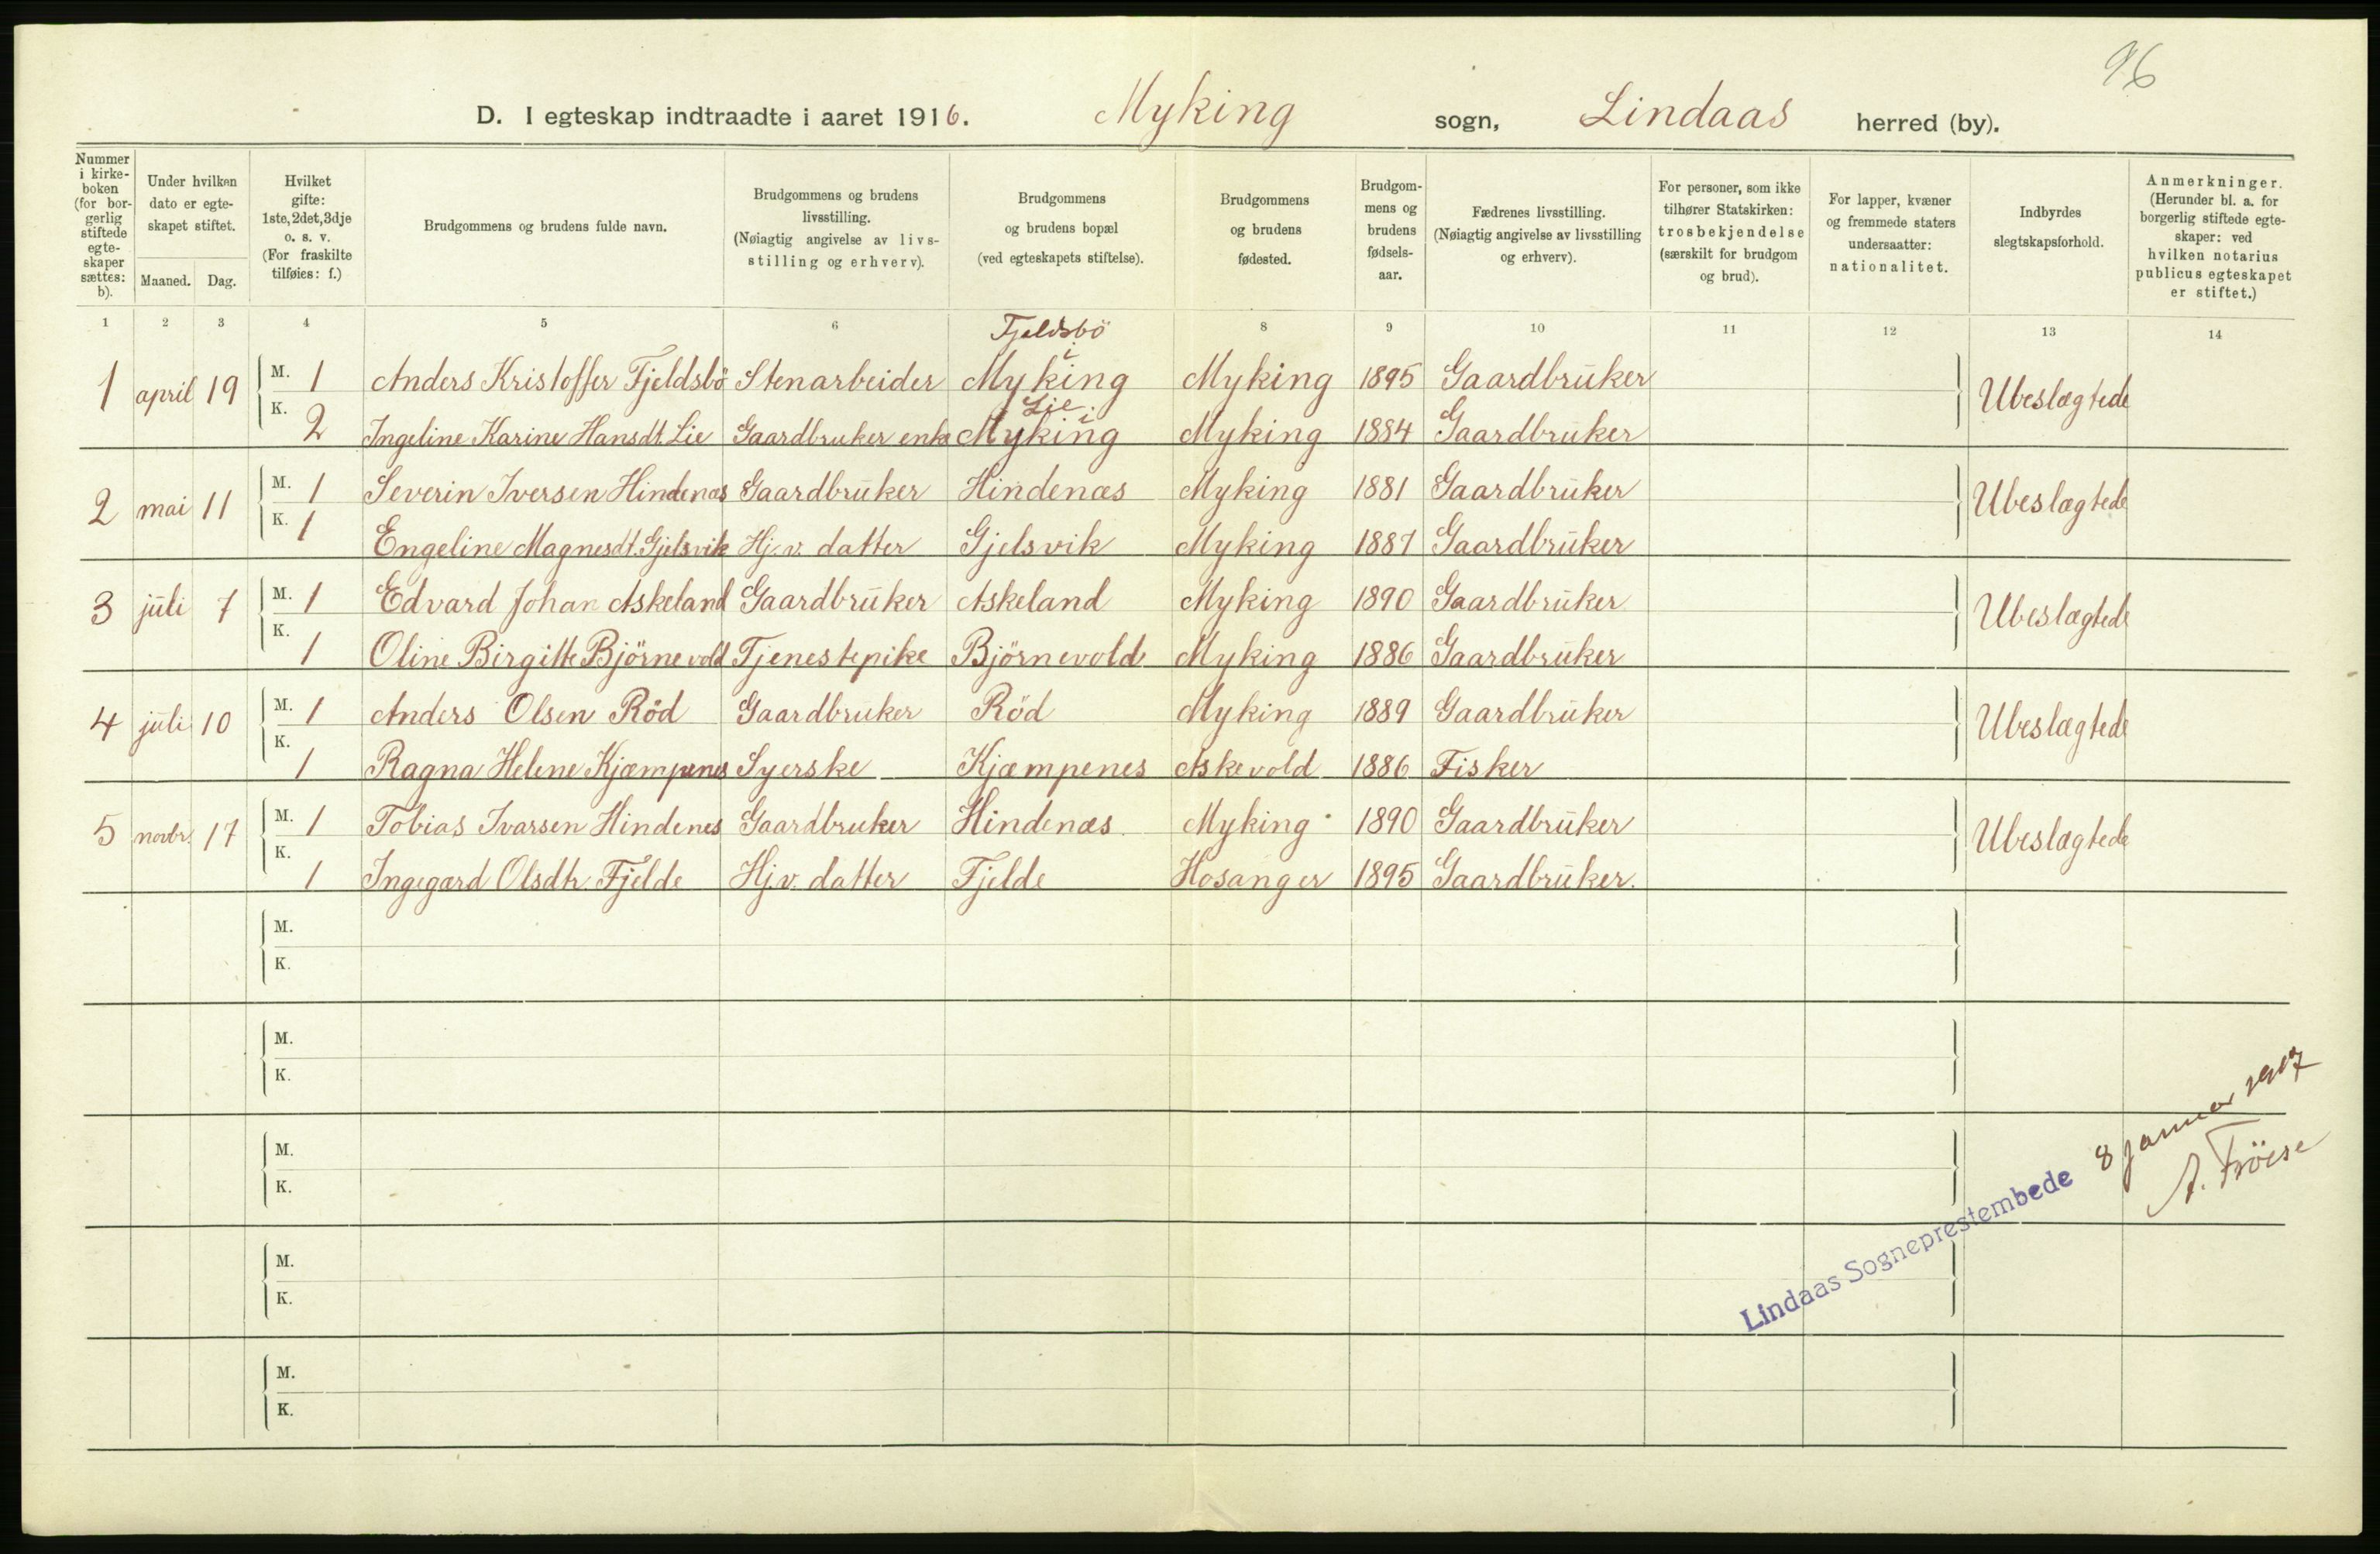 96
D. I egteskap indtraadte i aaret 1916. Myking sogn, Lindaas herred (by).
Nummer i kirke-boken (for bor-gerlig stiftede egte-skaper sættes: b).
Under hvilken dato er egte-skapet stiftet.
Maaned. Dag.
Hvilket gifte: 1ste, 2det, 3dje o. s. v. (For fraskilte tilføies: f.)
Brudgommens og brudens fulde navn.
Brudgommens og brudens livsstilling. (Nøiagtig angivelse av livs-stilling og erhverv).
Brudgommens og brudens bopæl (ved egteskapets stiftelse).
Brudgommens og brudens fødested.
Brudgom-mens og brudens fødsels-aar.
Fædrenes livsstilling. (Nøiagtig angivelse av livsstilling og erhverv).
For personer, som ikke tilhører Statskirken: trosbekjendelse (særskilt for brudgom og brud).
For lapper, kvæner og fremmede staters undersaatter: nationalitet.
Indbyrdes slegtskapsforhold.
Anmerkninger. (Herunder bl. a. for borgerlig stiftede egte-skaper: ved hvilken notarius publicus egteskapet er stiftet.)
1 2 3 4 5 6 8 9 10 11 12 13 14
Fjeldsbö i
1 april 19 M. 1 Anders Kristoffer Fjeldsbö Stenarbeider Myking Myking 1895 Gaardbruker Ubeslægtede
Lie i
K. 2 Ingeline Karine Hansdt. Lie Gaardbruker enke Myking Myking 1884 Gaardbruker
2 mai 11 M. 1 Severin Iversen Hindenæs Gaardbruker Hindenæs Myking 1881 Gaardbruker Ubeslægtede
K. 1 Engeline Magnesdt. Gjelsvik Hj.v. datter Gjelsvik Myking 1887 Gaardbruker
3 juli 7 M. 1 Edvard Johan Askeland Gaardbruker Askeland Myking 1890 Gaardbruker Ubeslægtede
K. 1 Oline Birgitte Björnevold Tjenestepike Björnevold Myking 1886 Gaardbruker
4 juli 10 M. 1 Anders Olsen Röd Gaardbruker Röd Myking 1889 Gaardbruker Ubeslægtede
K. 1 Ragna Helene Kjæmpenes Syerske Kjæmpenes Askevold 1886 Fisker
5 novbr. 17 M. 1 Tobias Ivarsen Hindenes Gaardbruker Hindenæs Myking 1890 Gaardbruker Ubeslægtede
K. 1 Ingegærd Olsdtr. Fjelde Hj.v. datter Fjelde Hosanger 1895 Gaardbruker.
M.
K.
M.
K.
M.
K.
M.
K.
M.
K.
Lindaas Sogneprestembede 8 januar 1917